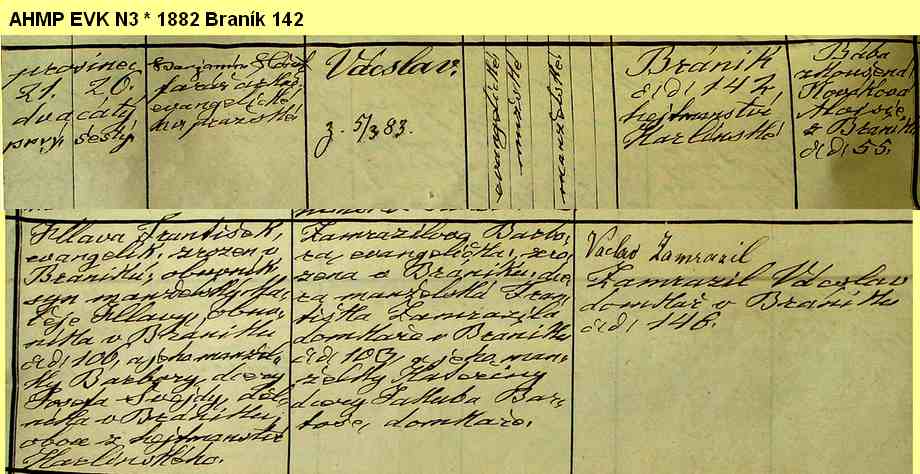 AHMP EVK N3 * 1882 Braník 142
prosinec
21. 26.
dva cátý
prvý šestý
Benjamin
farář církve
evangelické
Václav.
z. 5/3 83.
evangelické
mužské
manželské
Bráník
čís. 142
hejtmanství
Karlínské
Bába
zkoušená
Nováková
Aloisie
z Braníku
čís. 55.
Hlava František,
evangelík, zrozen v
Braníku, obuvník
syn manželský Ma-
těje Hlavy, obuv-
níka v Bráníku
čís. 106, a jeho manžel-
ky Barbory, dcery
Josefa Švejdy, děl-
níka v Braníku,
obou z hejtmanství
Karlínského.
Zamrazilová Barbo-
ra, evangelička, zro-
zena v Braníku, dce-
ra manželská Fran-
tiška Zamrazila
domkáře v Braníku
čís. 103, a jeho man-
želky Kateřiny
dcery Jakuba Bar-
toše, domkáře.
Václav Zamrazil
Zamrazil Václav
domkář v Braníku
čís. 146.